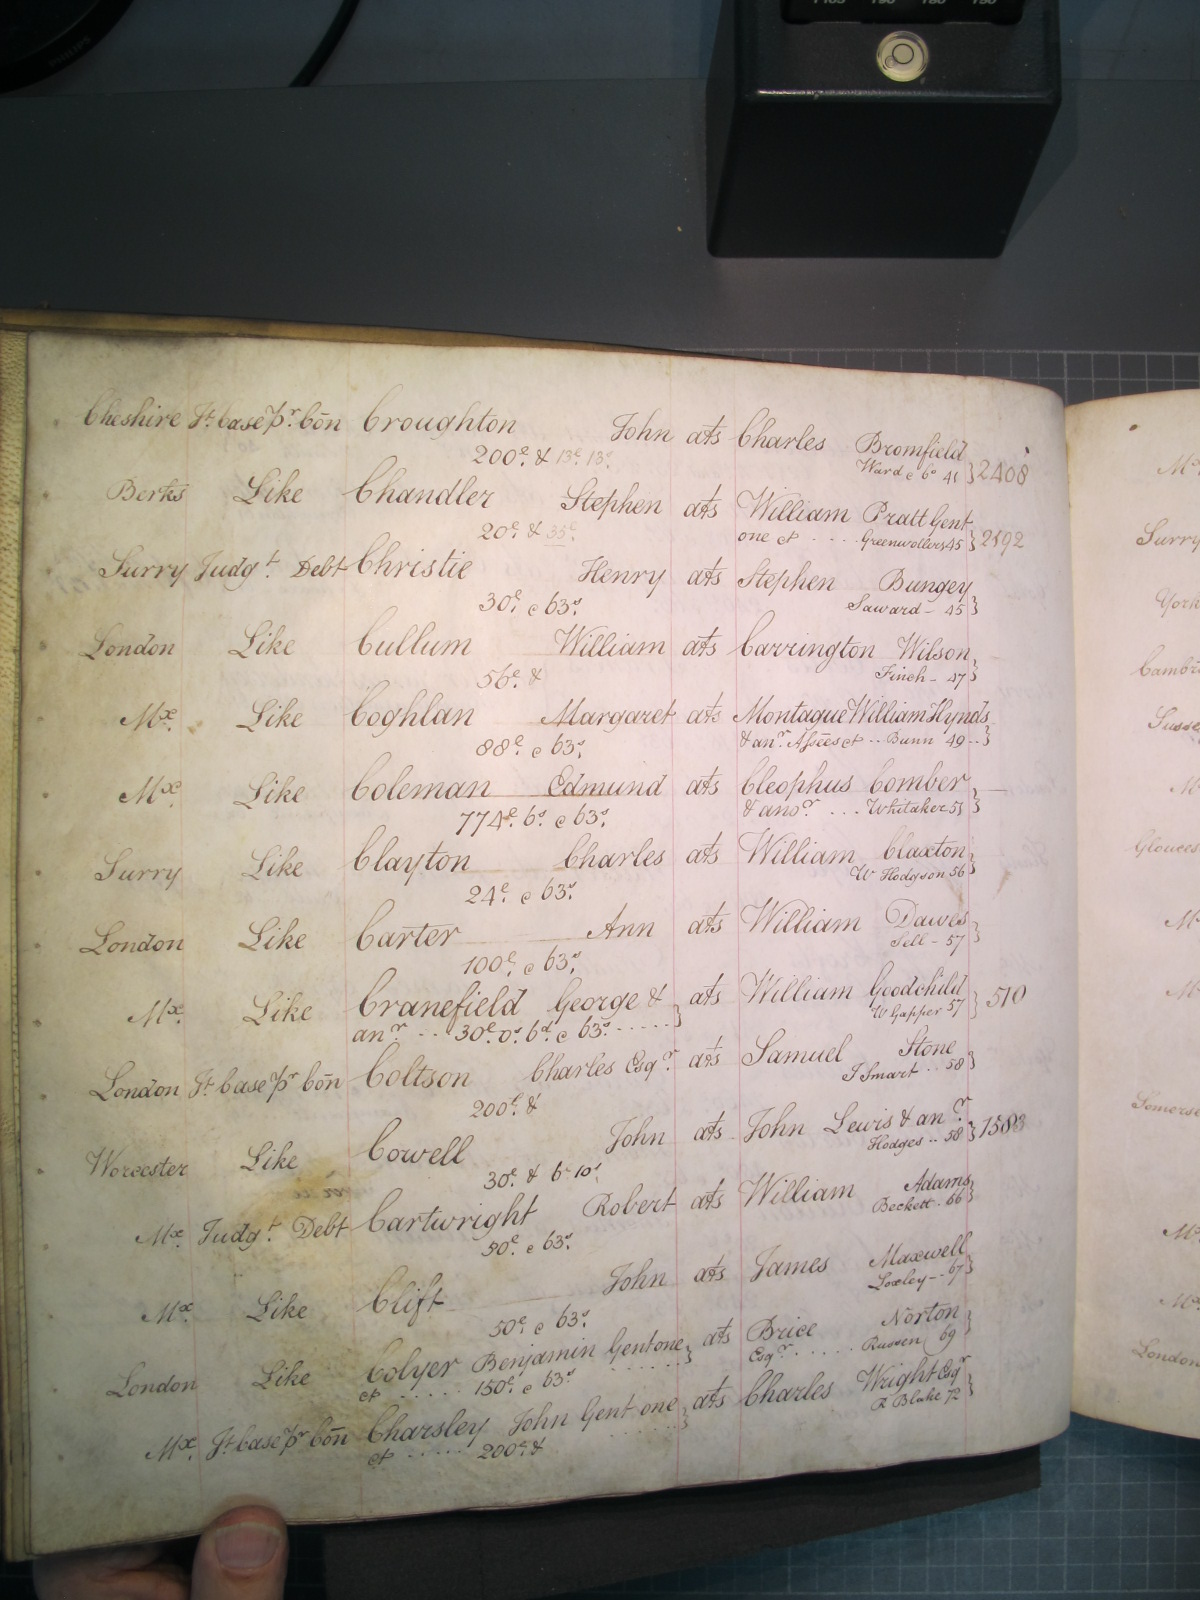 Cheshire Jt. Case pr. Con Croughton John ats Charles Bromfield
200£. & 13£. 13s. Ward & Co 41 } 2408
Berks Like Chandler Stephen ats William Pratt Gent
20£. & 35£. one &c ---- Greenwollers 45 } 2192
Surry Judgt. Debt Christie Henry ats Stephen Bungey
30£. & 63s. Saward - 45 }
London Like Cullum William ats Carrington Wilson
56£. & Finch - 47 }
Mx. Like Coghlan Margaret ats Montague William Hynds
88£. & 63s. & anr. Assees &c -- Bunn 49 -- }
Mx. Like Coleman Edmund ats Cleophus Comber
774£. 6s. & 63s. & anor. ... Whitaker 51 }
Surry Like Clayton Charles ats William Claxton
24£. & 63s. W Hodgson 56 }
London Like Carter Ann ats William Dawes
100£. & 63s. Sell - 57 }
Mx. Like Cranefield George & ats William Goodchild
anr. --- 30£. 0s. 6d. & 63s. ------ } W Gapper 57 } 510
London Jt Case pr Con Coltson Charles Esqr. ats Samuel Stone
200£. & J Smart -- 58 }
Worcester Like Cowell John ats John Lewis & anr.
30£. & 6£ 10s. Hodges -- 58 } 1583
Mx. Judgt. Debt Cartwright Robert ats William Adams
50£. & 63s. Beckett . 66 }
Mx. Like Clift John ats James Maxwell
50£. & 63s. Loxley -- 67 }
London Like Colyer Benjamin Gent one ats Brice Norton
&c ..... 150£. & 63s ...... } Esqr. ..... Russen 69 }
Mx. Jt Case pr Con Charsley John Gent one ats Charles Wright Esqr
&c ..... 200£. & ...... } R Blake 72 }
Surry
York
Somerse
London